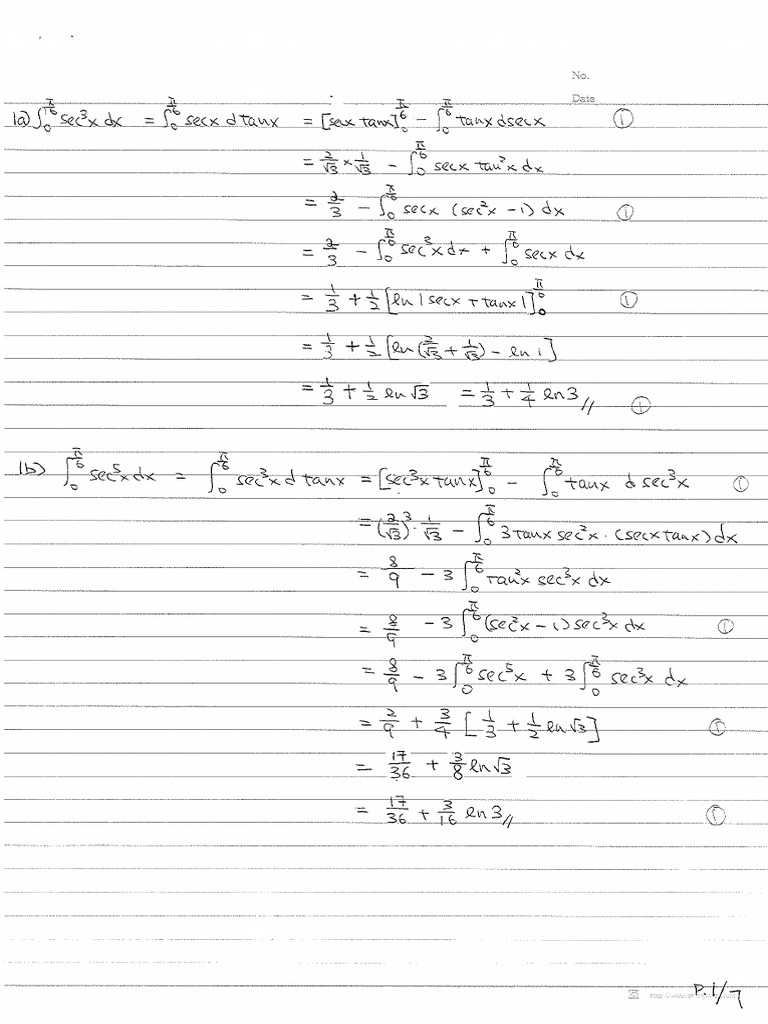 No.
Date
1a) ∫₀^{π/6} sec³x dx = ∫₀^{π/6} secx d tanx = [secx tanx]₀^{π/6} − ∫₀^{π/6} tanx dsecx ①
= 2/√3 × 1/√3 − ∫₀^{π/6} secx tan²x dx
= 2/3 − ∫₀^{π/6} secx (sec²x − 1) dx ①
= 2/3 − ∫₀^{π/6} sec³x dx + ∫₀^{π/6} secx dx
= 1/3 + 1/2 [ln|secx + tanx|]₀^{π/6} ①
= 1/3 + 1/2 [ln(2/√3 + 1/√3) − ln1]
= 1/3 + 1/2 ln√3 = 1/3 + 1/4 ln3 // ①
1b) ∫₀^{π/6} sec⁵x dx = ∫₀^{π/6} sec³x d tanx = [sec³x tanx]₀^{π/6} − ∫₀^{π/6} tanx d sec³x ①
= (2/√3)³ · 1/√3 − ∫₀^{π/6} 3tanx sec²x · (secx tanx) dx
= 8/9 − 3 ∫₀^{π/6} tan²x sec³x dx
= 8/9 − 3 ∫₀^{π/6} (sec²x − 1) sec³x dx ①
= 8/9 − 3 ∫₀^{π/6} sec⁵x + 3 ∫₀^{π/6} sec³x dx
= 2/9 + 3/4 [1/3 + 1/2 ln√3] ①
= 17/36 + 3/8 ln√3
= 17/36 + 3/16 ln3 // ①
P.1/7